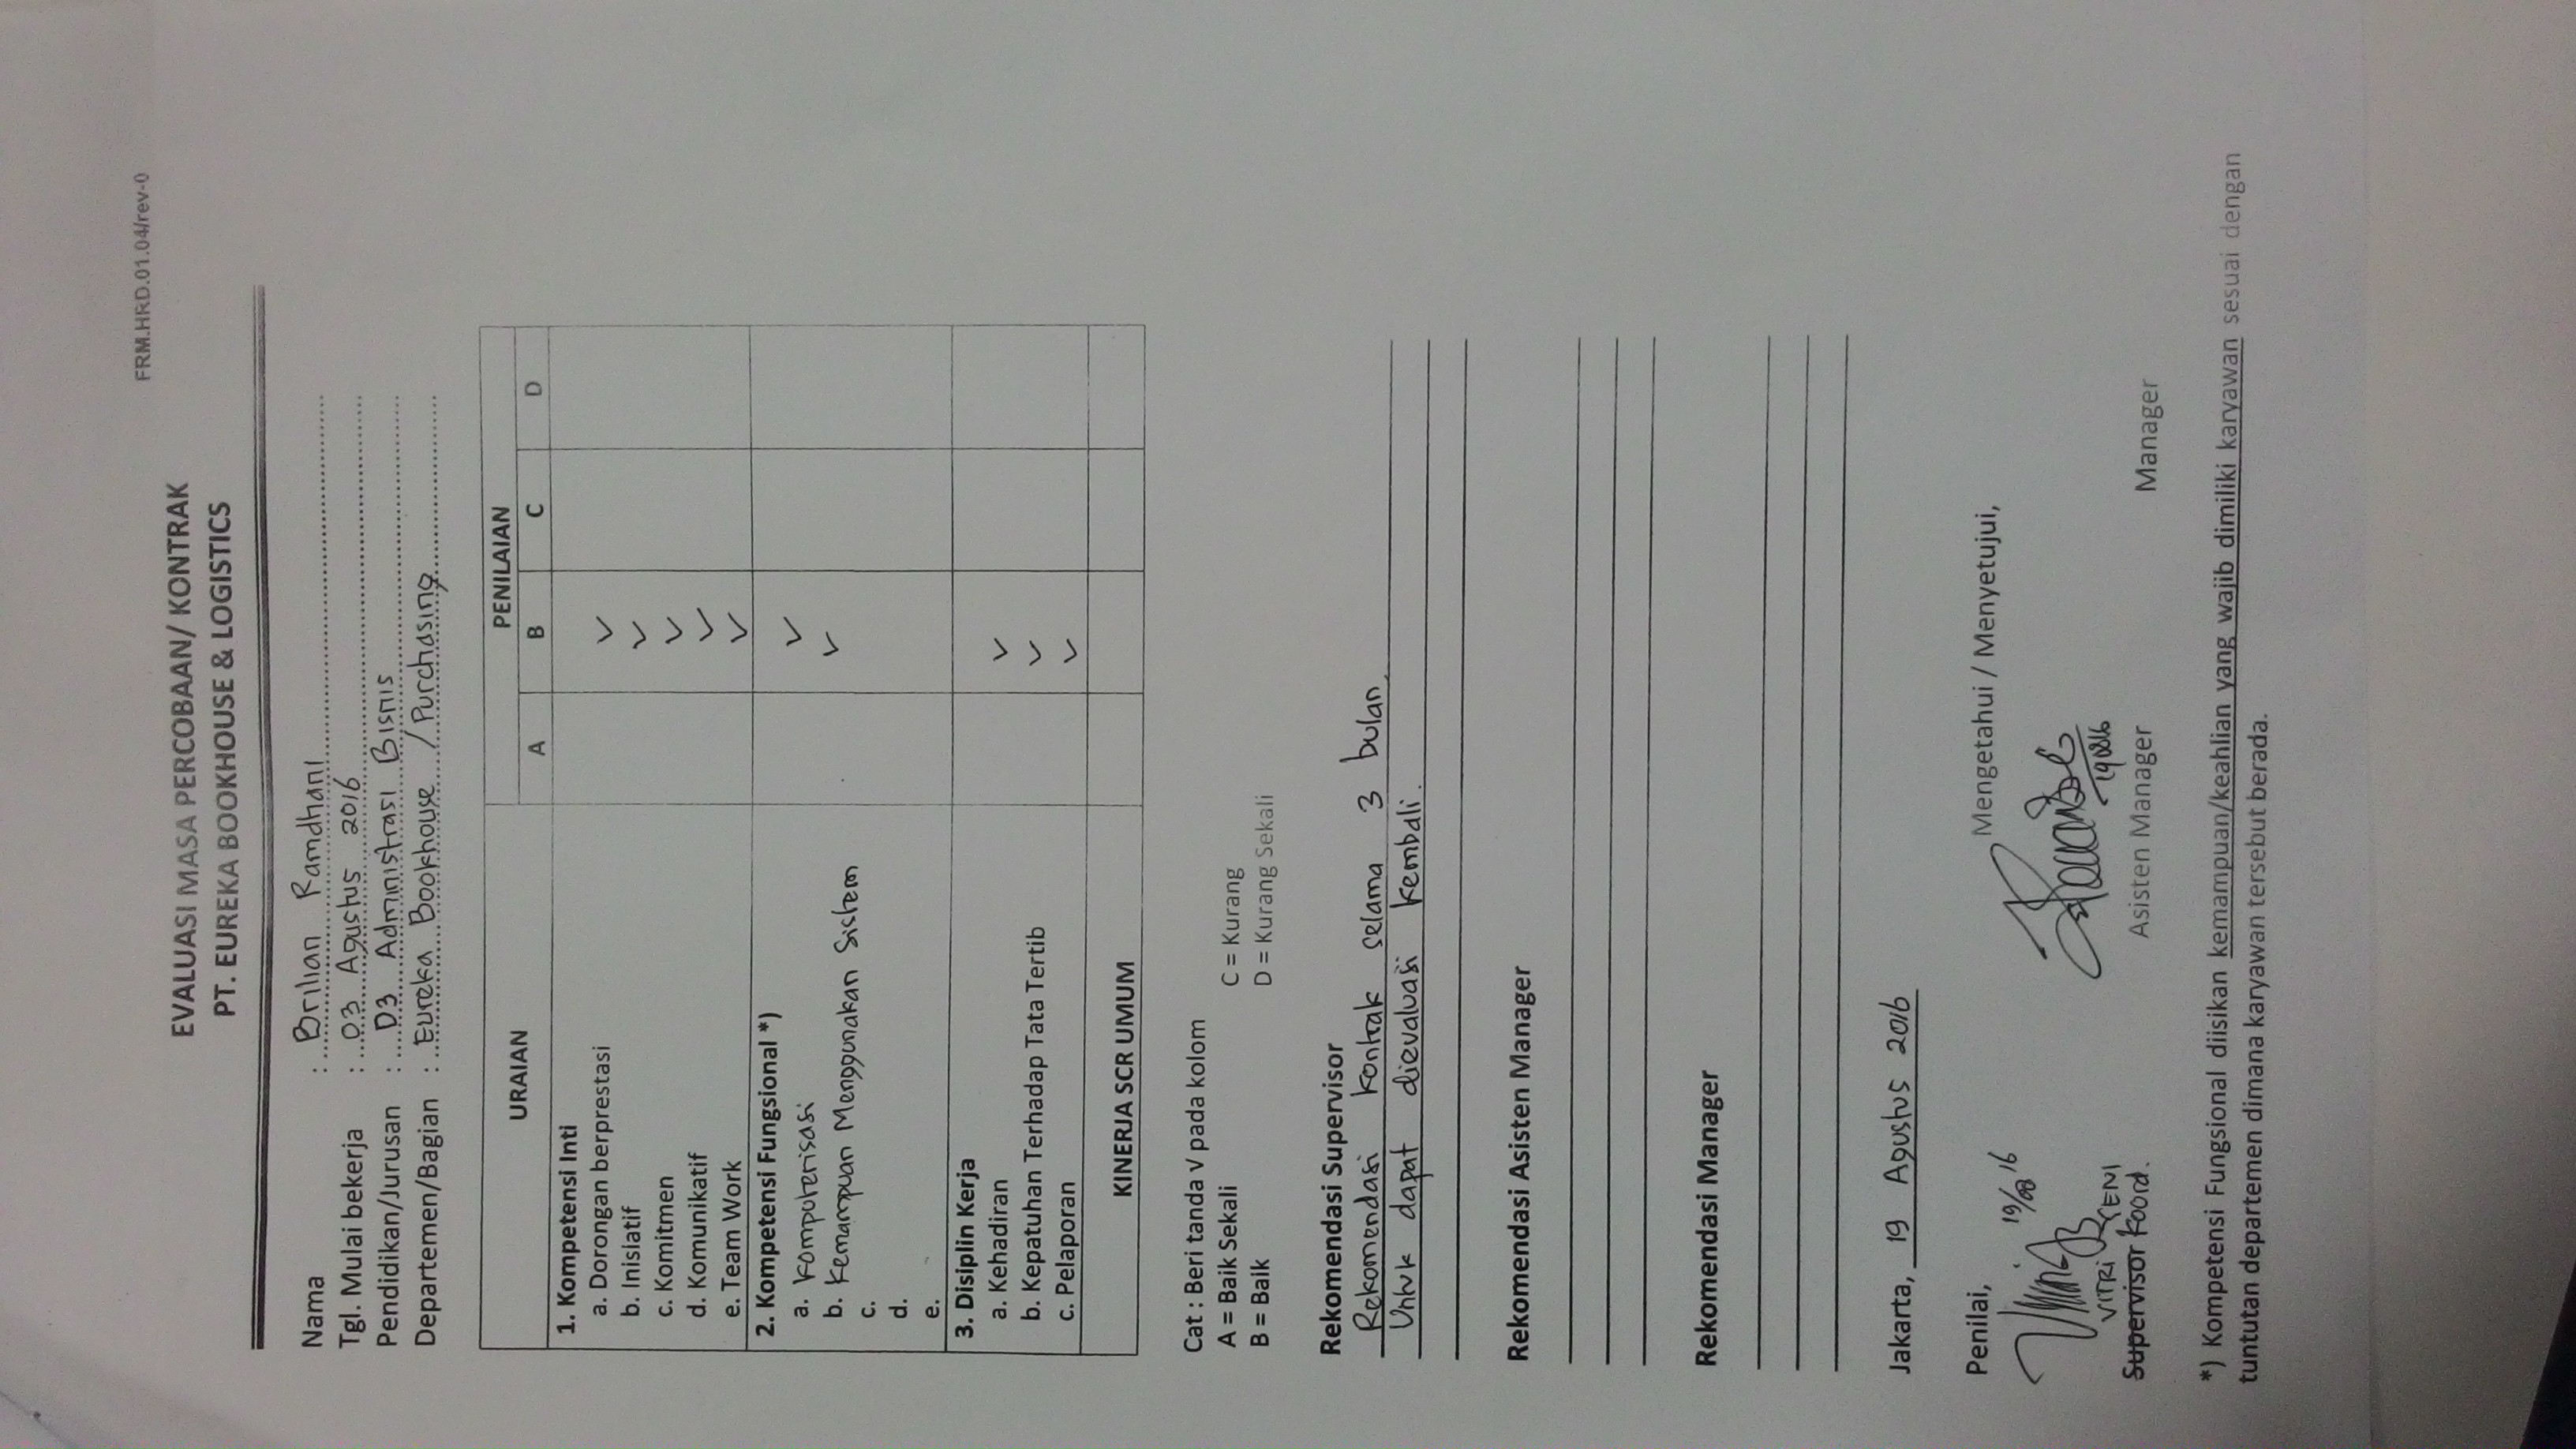 FRM.HRD.01.04/rev-0
EVALUASI MASA PERCOBAAN/ KONTRAK
PT. EUREKA BOOKHOUSE & LOGISTICS
Nama : Brilian Ramdhani
Tgl. Mulai bekerja : 03 Agustus 2016
Pendidikan/Jurusan : D3 Administrasi Bisnis
Departemen/Bagian : Eureka Bookhouse / Purchasing
URAIAN PENILAIAN
A B C D
1. Kompetensi Inti
a. Dorongan berprestasi ✓
b. Inisiatif ✓
c. Komitmen ✓
d. Komunikatif ✓
e. Team Work ✓
2. Kompetensi Fungsional *)
a. Komputerisasi ✓
b. Kemampuan Menggunakan Sistem ✓
c.
d.
e.
3. Disiplin Kerja
a. Kehadiran ✓
b. Kepatuhan Terhadap Tata Tertib ✓
c. Pelaporan ✓
KINERJA SCR UMUM
Cat : Beri tanda √ pada kolom
A = Baik Sekali C = Kurang
B = Baik D = Kurang Sekali
Rekomendasi Supervisor
Rekomendasi kontrak selama 3 bulan,
Untuk dapat dievaluasi kembali.
Rekomendasi Asisten Manager
Rekomendasi Manager
Jakarta, 19 Agustus 2016
Penilai, Mengetahui / Menyetujui,
19/08 16
190816
VITRI YENI
Supervisor Koord. Asisten Manager Manager
*) Kompetensi Fungsional diisikan kemampuan/keahlian yang wajib dimiliki karyawan sesuai dengan
tuntutan departemen dimana karyawan tersebut berada.